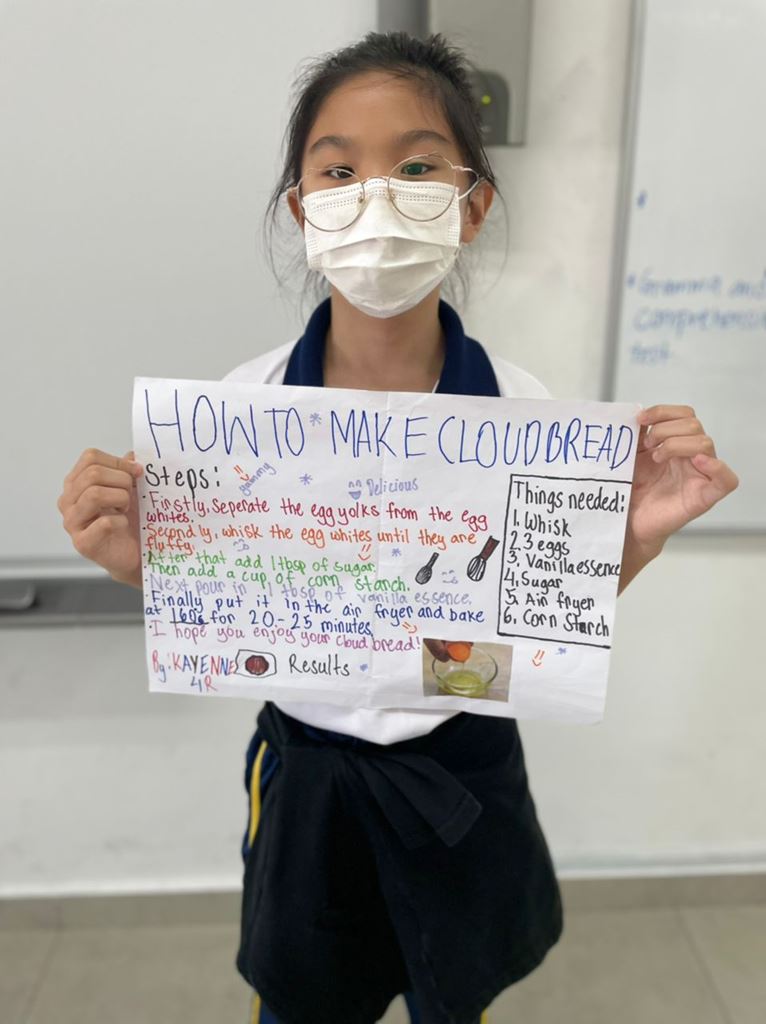 HOW TO MAKE CLOUDBREAD
Steps:
yummy
Delicious
- Firstly, Seperate the egg yolks from the egg
whites.
- Secondly, whisk the egg whites until they are
fluffy.
- After that add 1 tbsp of sugar.
Then add a cup of corn starch.
Next pour in 1 tbsp of vanilla essence.
- Finally put it in the air fryer and bake
at for 20-25 minutes,
- I hope you enjoy your cloud bread!
By: KAYENNE
4R
Results
Things needed:
1. Whisk
2. 3 eggs
3. Vanilla essence
4. Sugar
5. Air fryer
6. Corn Starch
and
test